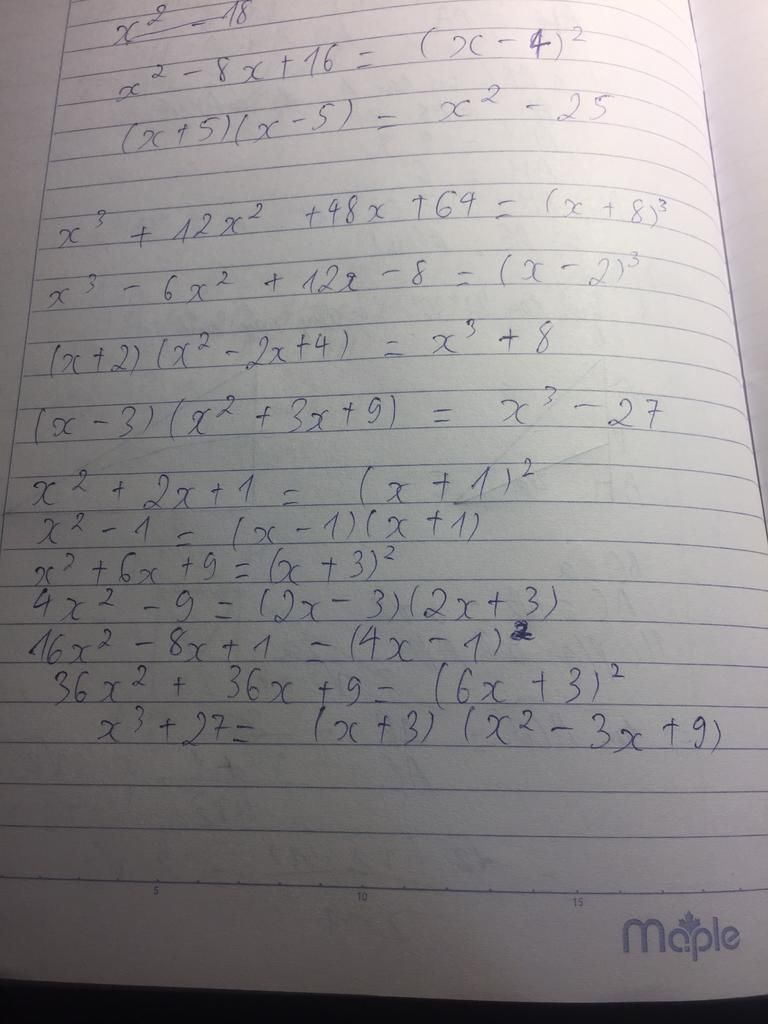 x² - 18
x² - 8x + 16 = (x - 4)²
(x+5)(x-5) = x² - 25
x³ + 12x² + 48x + 64 = (x + 8)³
x³ - 6x² + 12x - 8 = (x - 2)³
(x+2)(x² - 2x+4) = x³ + 8
(x - 3)(x² + 3x + 9) = x³ - 27
x² + 2x + 1 = (x + 1)²
x² - 1 = (x - 1)(x + 1)
x² + 6x + 9 = (x + 3)²
4x² - 9 = (2x - 3)(2x + 3)
16x² - 8x + 1 - (4x - 1)²
36x² + 36x + 9 = (6x + 3)²
x³ + 27 = (x + 3)(x² - 3x + 9)
5 10 15
Maple